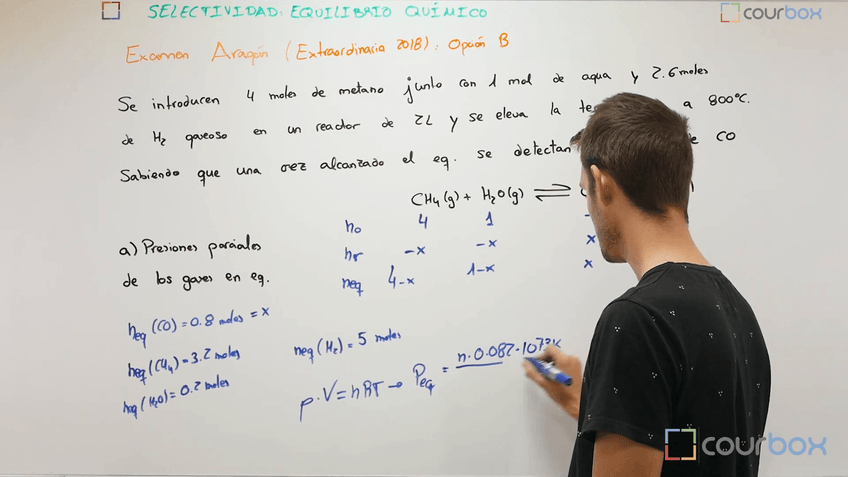 SELECTIVIDAD: EQUILIBRIO QUÍMICO
courbox
Examen Aragón (Extraordinaria 2018): Opción B
Se introducen 4 moles de metano junto con 1 mol de agua y 2.6 moles
de H2 gaseoso en un reactor de 2L y se eleva la a 800ºC.
Sabiendo que una vez alcanzado el eq. se detectan CO
CH4(g) + H2O(g) ⇌
n0 4 1
nr -x -x x
neq 4-x 1-x x
a) Presiones parciales
de los gases en eq.
neq (CO) = 0.8 moles = x
neq (CH4) = 3.2 moles
neq (H2O) = 0.2 moles
neq (H2) = 5 moles
p·V = nRT → Peq = n·0.082·1073K
courbox